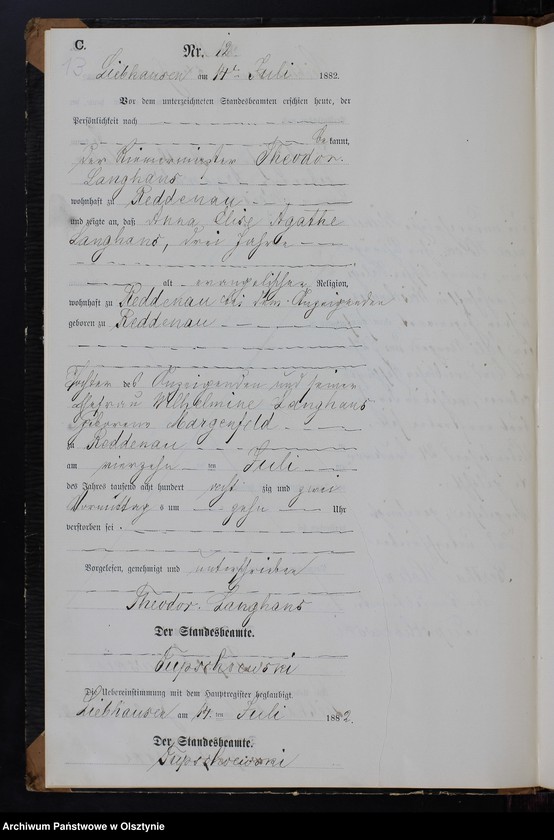 C.
Nr. 12.
13
Liebhausen am 14ten Juli 1882.
Vor dem unterzeichneten Standesbeamten erschien heute, der
Persönlichkeit nach
bekannt,
der Riemermeister Theodor
Langhans
wohnhaft zu Reddenau
und zeigte an, daß Anna Elise Agathe
Langhans, drei Jahre
alt evangelischer Religion,
wohnhaft zu Reddenau bei dem Anzeigenden
geboren zu Reddenau
Tochter des Anzeigenden und seiner
Ehefrau Wilhelmine Langhans
geborene Margenfeld
zu Reddenau
am vierzehn ten Juli
des Jahres tausend acht hundert acht zig und zwei
Vormittags um zehn Uhr
verstorben sei.
Vorgelesen, genehmigt und unterschrieben
Theodor Langhans
Der Standesbeamte.
Die Uebereinstimmung mit dem Hauptregister beglaubigt.
Liebhausen am 14. ten Juli 1882.
Der Standesbeamte.
Archiwum Państwowe w Olsztynie